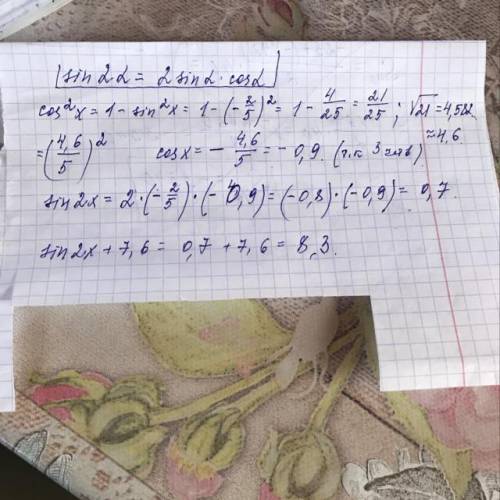 sin2α = 2 sinα · cosα
cos²x = 1 - sin²x = 1 - (-2/5)² = 1 - 4/25 = 21/25 ; √21 = 4,582
≈ 4,6.
= (4,6/5)² cosx = - 4,6/5 = - 0,9. (т.к 3 четв)
sin2x = 2 · (-2/5) · (-0,9) = (-0,8) · (-0,9) = 0,7
sin2x + 7,6 = 0,7 + 7,6 = 8,3.